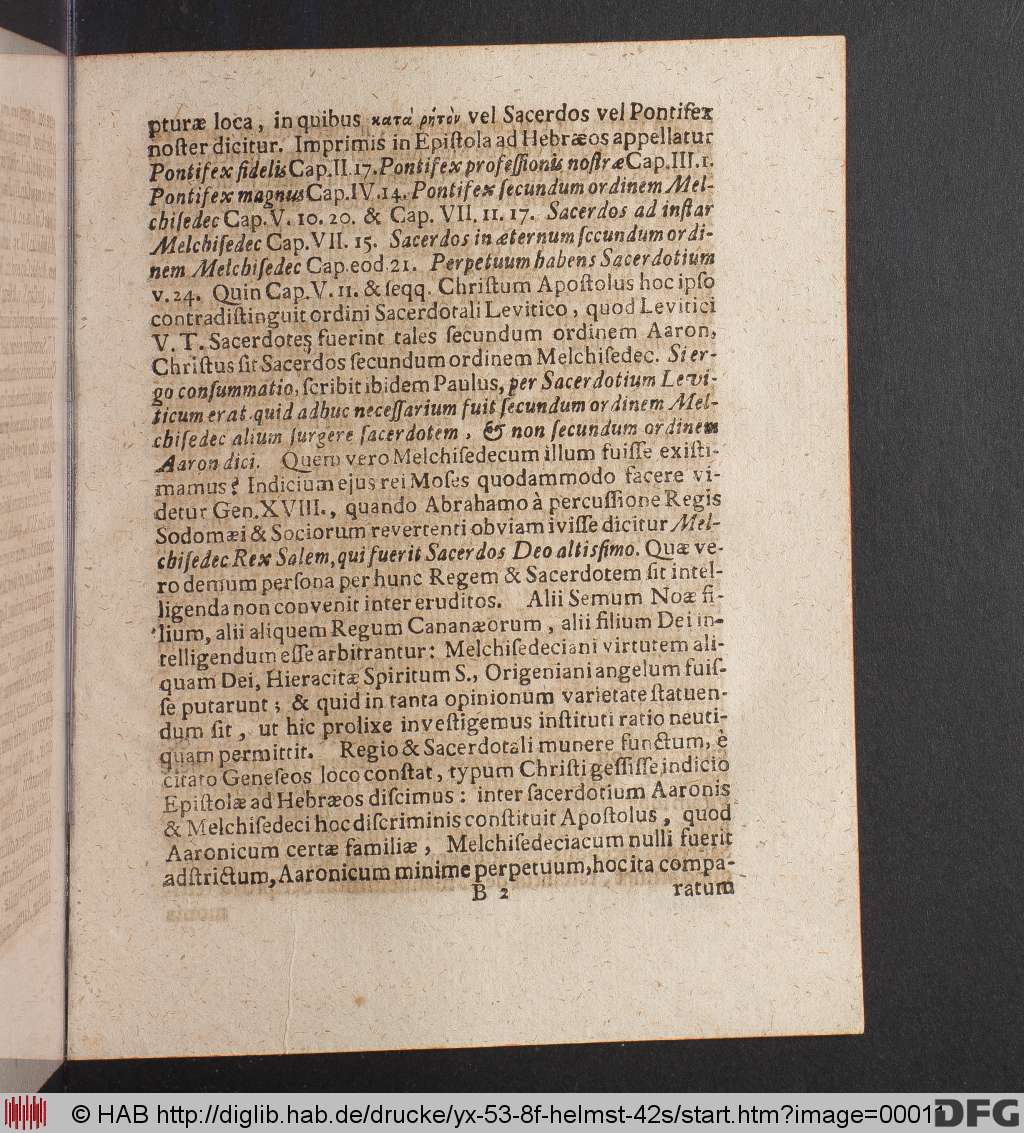 pturæ loca, in quibus κατὰ ῥητὸν vel Sacerdos vel Pontifex
noſter dicitur. Imprimis in Epiſtola ad Hebræos appellatur
Pontifex fidelis Cap. II. 17. Pontifex profeſſionis noſtræ Cap. III. 1.
Pontifex magnus Cap. IV. 14. Pontifex ſecundum ordinem Mel-
chiſedec Cap. V. 10. 20. & Cap. VII. 11. 17. Sacerdos ad inſtar
Melchiſedec Cap. VII. 15. Sacerdos in æternum ſecundum ordi-
nem Melchiſedec Cap. eod. 21. Perpetuum habens Sacerdotium
v. 24. Quin Cap. V. 11. & ſeqq. Chriſtum Apoſtolus hoc ipſo
contradiſtinguit ordini Sacerdotali Levitico, quod Levitici
V. T. Sacerdotes fuerint tales ſecundum ordinem Aaron,
Chriſtus ſit Sacerdos ſecundum ordinem Melchiſedec. Si er-
go conſummatio, ſcribit ibidem Paulus, per Sacerdotium Levi-
ticum erat, quid adhuc neceſſarium fuit ſecundum ordinem Mel-
chiſedec alium ſurgere ſacerdotem, & non ſecundum ordinem
Aaron dici. Quem vero Melchiſedecum illum fuiſſe exiſti-
mamus? Indicium ejus rei Moſes quodammodo facere vi-
detur Gen. XVIII., quando Abrahamo à percuſſione Regis
Sodomæi & Sociorum revertenti obviam iviſſe dicitur Mel-
chiſedec Rex Salem, qui fuerit Sacerdos Deo altisſimo. Quæ ve-
ro demum perſona per hunc Regem & Sacerdotem ſit intel-
ligenda non convenit inter eruditos. Alii Semum Noæ fi-
lium, alii aliquem Regum Cananæorum, alii filium Dei in-
telligendum eſſe arbitrantur: Melchiſedeciani virtutem ali-
quam Dei, Hieracitæ Spiritum S., Origeniani angelum fuiſ-
ſe putarunt; & quid in tanta opinionum varietate ſtatuen-
dum ſit, ut hic prolixe inveſtigemus inſtituti ratio neuti-
quam permittit. Regio & Sacerdotali munere functum, è
citato Geneſeos loco conſtat, typum Chriſti geſſiſſe indicio
Epiſtolæ ad Hebræos diſcimus: inter ſacerdotium Aaronis
& Melchiſedeci hoc diſcriminis conſtituit Apoſtolus, quod
Aaronicum certæ familiæ, Melchiſedeciacum nulli fuerit
adſtrictum, Aaronicum minime perpetuum, hoc ita compa-
B 2 ratum
© HAB http://diglib.hab.de/drucke/yx-53-8f-helmst-42s/start.htm?image=00011
DFG